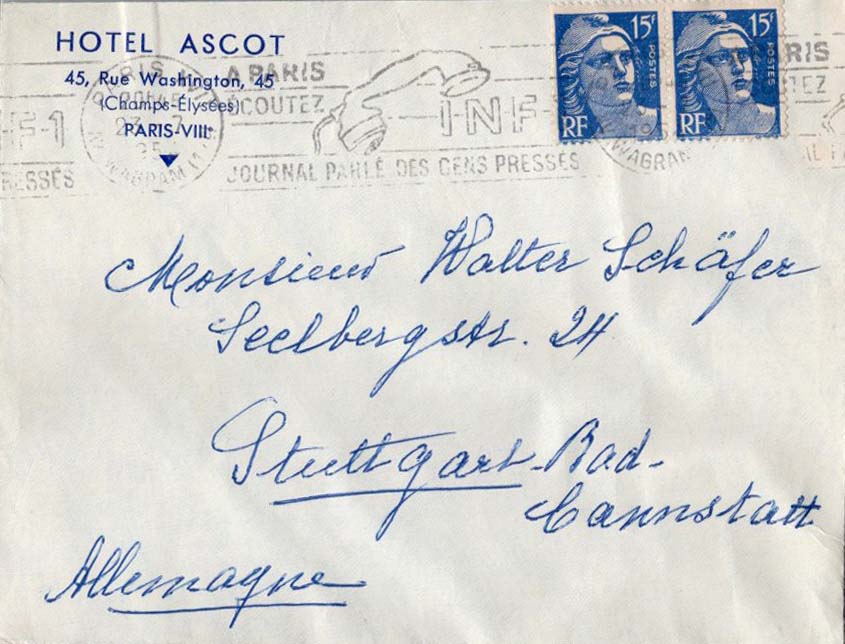 HOTEL ASCOT
45, Rue Washington, 45
(Champs-Élysées)
PARIS-VIIIe
15F POSTES RF
15F POSTES RF
A PARIS
ÉCOUTEZ
INF-1
JOURNAL PARLÉ DES GENS PRESSÉS
PARIS
23-7
AV. WAGRAM (17
WAGRAM
Monsieur Walter Schäfer
Seelbergstr. 24
Stuttgart-Bad-
Cannstatt
Allemagne